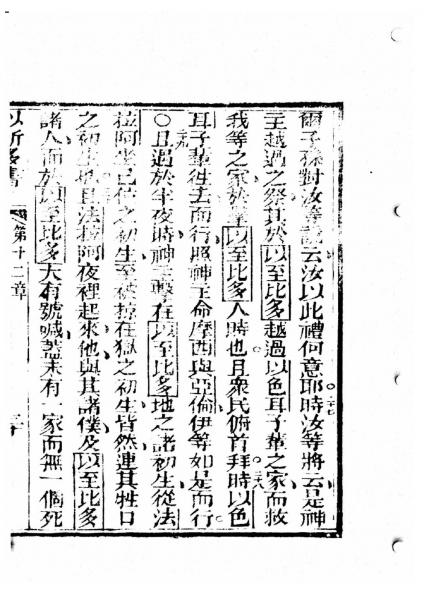 爾子孫對汝等說云汝以此禮何意耶時汝等將云是神
主越過之祭其於以至比多越過以色耳子輩之家而救
我等之家於擊以至比多人時也且眾民俯首拜時以色
耳子輩徃去而行照神主命摩西與亞倫伊等如是而行
○且過於半夜時神主擊在以至比多地之諸初生從法
拉阿坐己位之初生至被掠在獄之初生皆然連其牲口
之初生然且法拉阿夜裡起來他與其諸僕及以至比多
諸人而於以至比多大有號喊蓋未有一家而無一個死
以所多書 第十二章